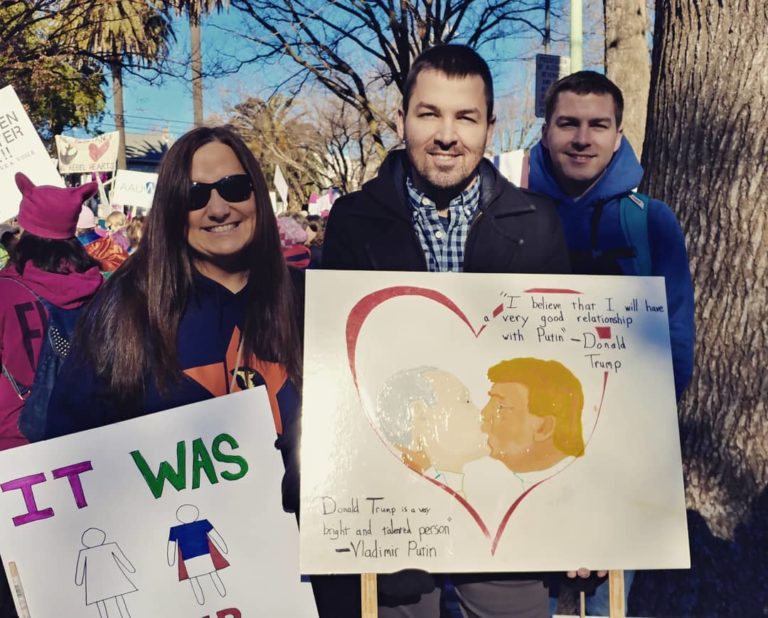 AAU
"I believe that I will have
a very good relationship
with Putin" — Donald
Trump
Donald Trump is a very
bright and talented person"
— Vladimir Putin
IT WAS